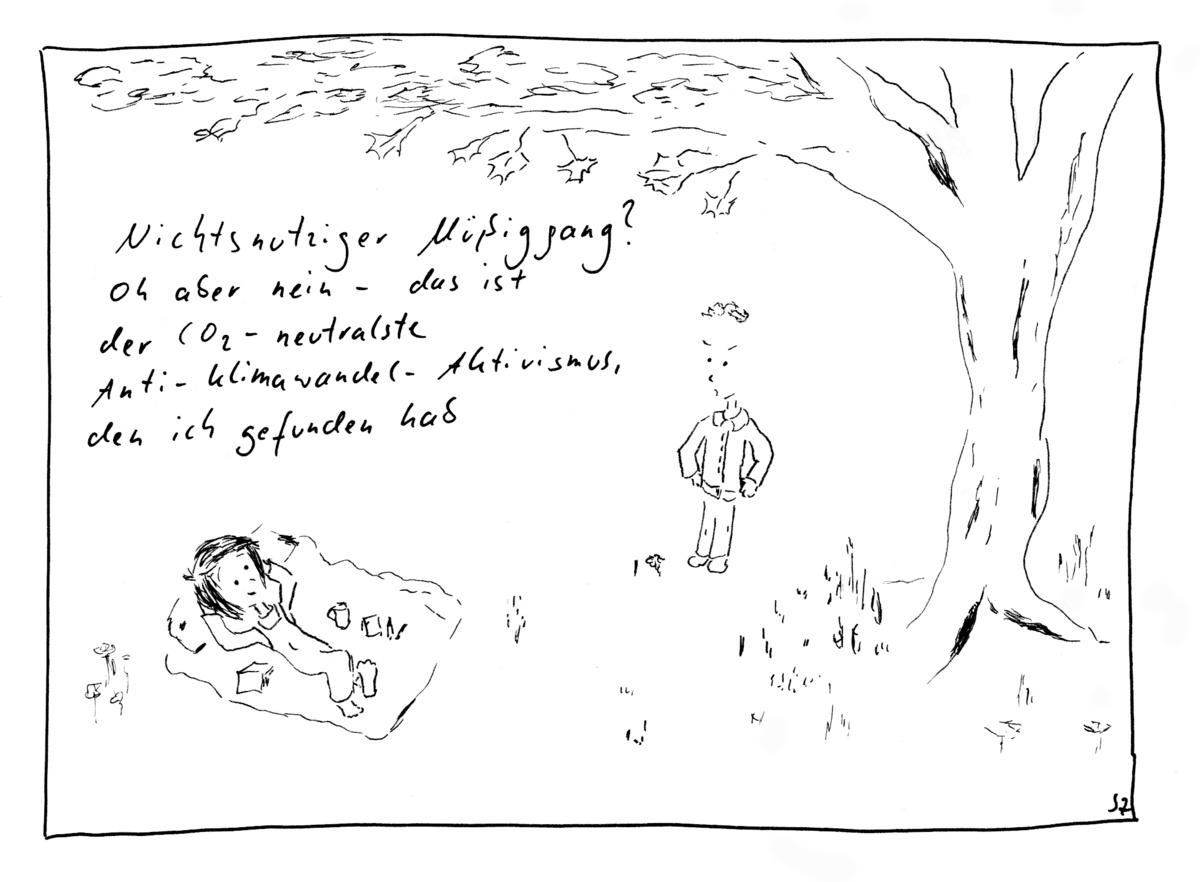 Nichtsnutziger Müßiggang?
Oh aber nein - das ist
der CO₂-neutralste
Anti-Klimawandel-Aktivismus,
den ich gefunden hab
SZ